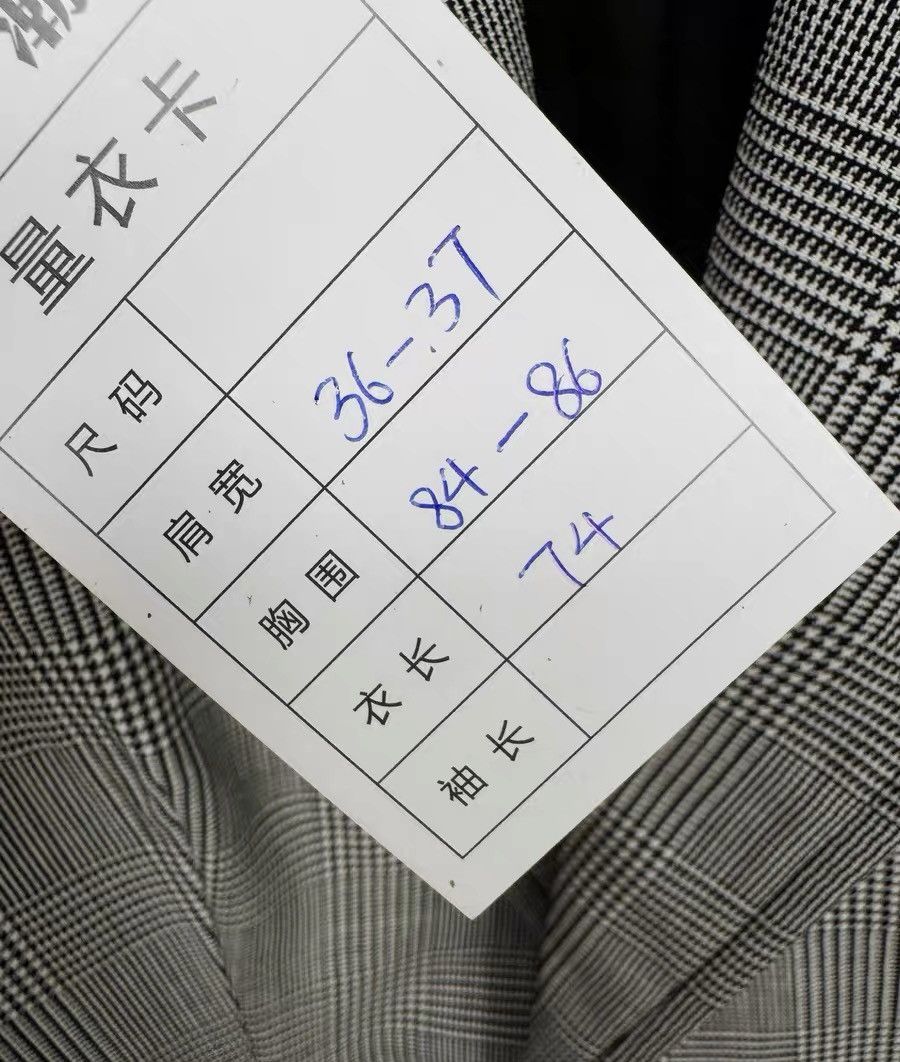 量衣卡
尺码
肩宽 36-37
胸围 84-86
衣长 74
袖长